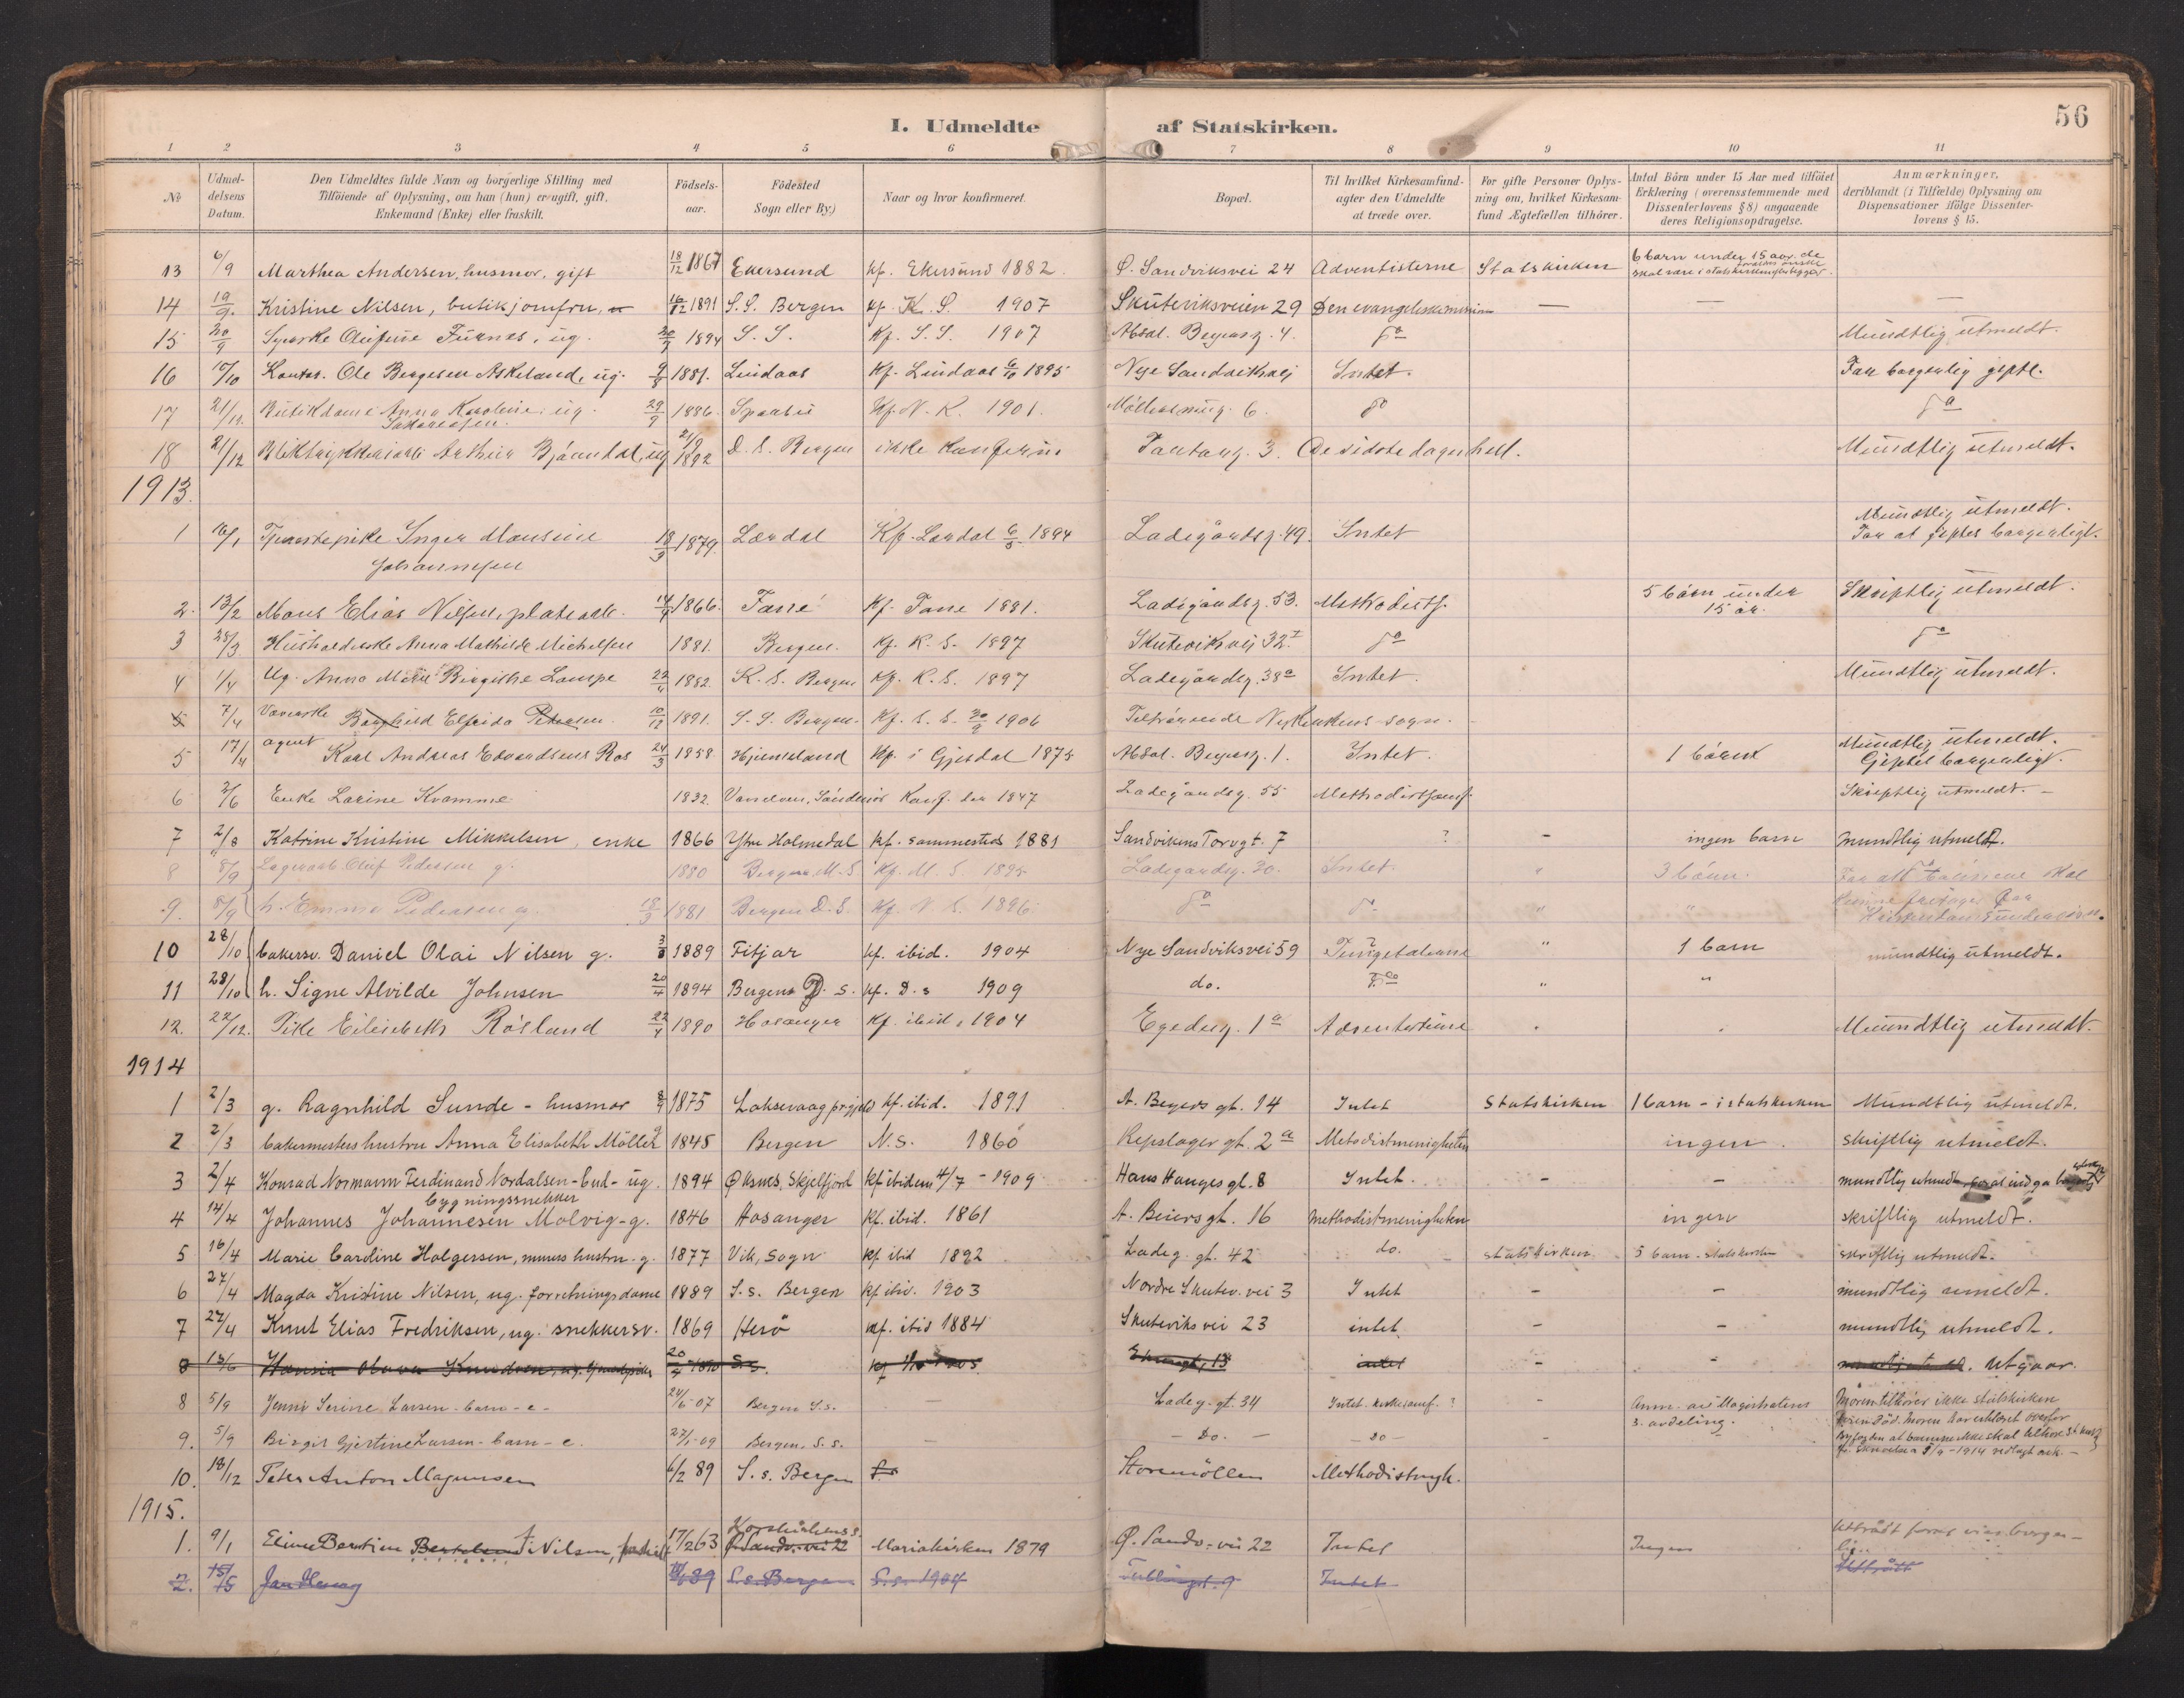 56
I. Udmeldte af Statskirken.
1 2 3 4 5 6 7 8 9 10 11
№
Udmeldelsens Datum.
Den Udmeldtes fulde Navn og borgerlige Stilling med Tilföiende af Oplysning, om han (hun) er ugift, gift, Enkemand (Enke) eller fraskilt.
Födselsaar.
Födested Sogn eller By.)
Naar og hvor konfirmeret.
Bopæl.
Til hvilket Kirkesamfund agter den Udmeldte at træde over.
For gifte Personer Oplysning om, hvilket Kirkesamfund Ægtefællen tilhörer.
Antal Börn under 15 Aar med tilföiet Erklæring (overensstemmende med Dissenterlovens § 8) angaaende deres Religionsopdragelse.
Anmærkninger, deriblandt (i Tilfælde) Oplysning om Dispensationer ifölge Dissenterlovens § 15.
13 6/9 Marthea Andersen, husmor, gift 18/12 1867 Ekersund kf. Ekersund 1882 Ø. Sandviksvei 24 Adventisterne Statskirken 6 barn under 15 aar, de skal være i statskirken
14 19/9. Kristine Nilsen, butikjomfru, 1891 S.S. Bergen kf. K.S. 1907 Skuteviksveien 29 Den evangeliske mission — — —
15 20/9 Syerske Olufine Furnes, ug. 1894 S.S. Kf. S.S. 1907 Absal. Beyersg. 4. do Mundtlig utmeldt.
16 10/10 Kontor. Ole Bergesen Askeland, ug. 1881. Lindaas Kf. Lindaas 6/10 1895 Nye Sandviksvej Intet. For borgerlig gifte.
17 21/12. Butikdame Anna Karoline, ug. 29/9 1886. Kf. N.K. 1901. 6. do do
18 21/12 Arthur Bjørndal, ug 21/9 1892 D.S. Bergen ikke konfirm. 3. De sidste dages hell. Mundtlig utmeldt.
1913.
1 Tjenestepike Inger Monsine Johannesen 18/3 1879. Lærdal Kf. Lærdal 1894 Ladegårdsg. 49. Intet Mundtlig utmeldt. For at giftes borgerligt.
2. 13/2 Mons Elias Nilsen, 1866. Kf. 1881. Ladegårdsg. 53. Methodistf. 5 børn under 15 år. Skriftlig utmeldt.
3 28/3 Husholderske Anna Mathilde Michelsen 1881. Bergen. Kf. K.S. 1897 Skuteviksvej 32 I do do
4 1/4 Ug. Anna Marie Birgithe Lampe 22/4 1882. K.S. Bergen Kf. K.S. 1897 Ladegårdsg. 38a Intet. Mundtlig utmeldt.
5 7/4 Væverske Borghild Elfrida Petersen 10/12 1891. S.S. Bergen. Kf. S.S. 30/9 1906 Tilhørende Nykirkens sogn.
5 17/4 agent Karl Andreas Edvardsens Ros 24/3 1858 Hjelmeland Kf. i Gjesdal 1875 Absal. Beyersg. 1. Intet. 1 Mundtlig utmeldt. Giftet borgerligt.
6 2/6 Enke Larine Kvamme 1832. Konf. der 1847 Ladegårdsg. 55 Methodistsamf. Skriftlig utmeldt. -
7 2/8 Katrine Kristine Mikkelsen, enke 1866 Ytre Holmedal kf. sammesteds 1881 Sandvikens Torvgt. 7 ? - ingen barn mundtlig utmeldt.
8 8/9 Lagerarb. Oluf Pedersen g. 1880 Bergen M.S. Kf. M.S. 1895 Ladegårdsg. 30. Intet. " 3 børn. For att børnene skal
9. 8/9 h. Emma Pedersen g. 18/3 1881 Bergen D.S. Kf. N.S. 1896 do do " "
10 28/10 bakersv. Daniel Olai Nilsen g. 1889 Fitjar kf. ibid. 1904 Nye Sandviksvei 59 " 1 barn mundtlig utmeldt.
11 28/10 h. Signe Alvilde Johnsen 20/4 1894 Bergens D.s. kf. D.s 1909 do. do " "
12. 22/12. Pike Elisabeth Røsland 22/4 1890 Hosanger Kf. ibid. 1904 Egedesg. 1a Adventisterne Mundtlig utmeldt.
1914
1 2/3 g. Ragnhild Sunde - husmor 1875 Laksevaag prgjeld kf. ibid. 1891 A. Beyers gt. 14 Intet Statskirken 1 barn - i statskirken Mundtlig utmeldt.
2 2/3 bakermesters hustru Anna Elisabeth Möller 1845 Bergen N.s. 1860 Repslager gt. 2a Metodistmenigheten ingen. skriftlig utmeldt.
3 2/4 Konrad Normann Ferdinand Nordalsen - bud - ug. 1894 Øksnes, Skjelfjord kf ibidem 4/7 - 1909 Hans Hauges gt. 8 Intet. - - mundtlig utmeldt
4 14/4 bygningssnekker Johannes Johannesen Molvig - g. 1846 Hosanger kf. ibid. 1861 A. Beiers gt. 16 Methodistmenigheten ingen skriftlig utmeldt.
5 16/4 Marie Caroline Holgersen, murers hustru - g. 1877 Vik, Sogn kf. ibid 1892 Ladeg. gt. 42 do. statskirken. 5 barn - statskirken skriftlig utmeldt.
6 27/4 Magda Kristine Nilsen, ug. forretningsdame 1889 S.s. Bergen kf. ibid. 1903 Nordre Skutev. vei 3 Intet - - mundtlig umeldt.
7 27/4 Knut Elias Fredriksen, ug. snekkersv. 1869 Herö kf. ibid 1884 Skuteviks vei 23 intet - - mundtlig utmeldt.
8 13/6 Hansia Olava Knudsen, ug. 20/4 S.s. 13 intet - - Utgaar.
8 5/9 Jenny Serine Larsen - barn - e - 24/6 - 07 Bergen S.s. — Ladeg. gt. 34 Intet. kirkesamf. ? - Anm. av Magistratens 3. avdeling. Moren tilhører ikke statskirken
9. 5/9 Birgit Gjertine Larsen - barn - e. 27/1 - 09 Bergen, S.s. — - Do. - - do - - Faren död. Moren har erklæret overfor Byfogden at barnene ikke skal tilhøre St. kirk
1914 vedlagt ark. -
10. 18/12 Peter Anton Magnussen 6/2 89 S.s. Bergen Storemöllen Methodistmgh.
1915.
1. 9/1 Eline Bertine Nilsen, fraskilt 17/2 63 Korskirkens s. Ø. Sandv. vei 22 Mariakirken 1879 Ø. Sandv. vei 22 Intet Ingen
2. 15/5 89 S.s. Bergen S.s. 1904 9 Intet Utträdt